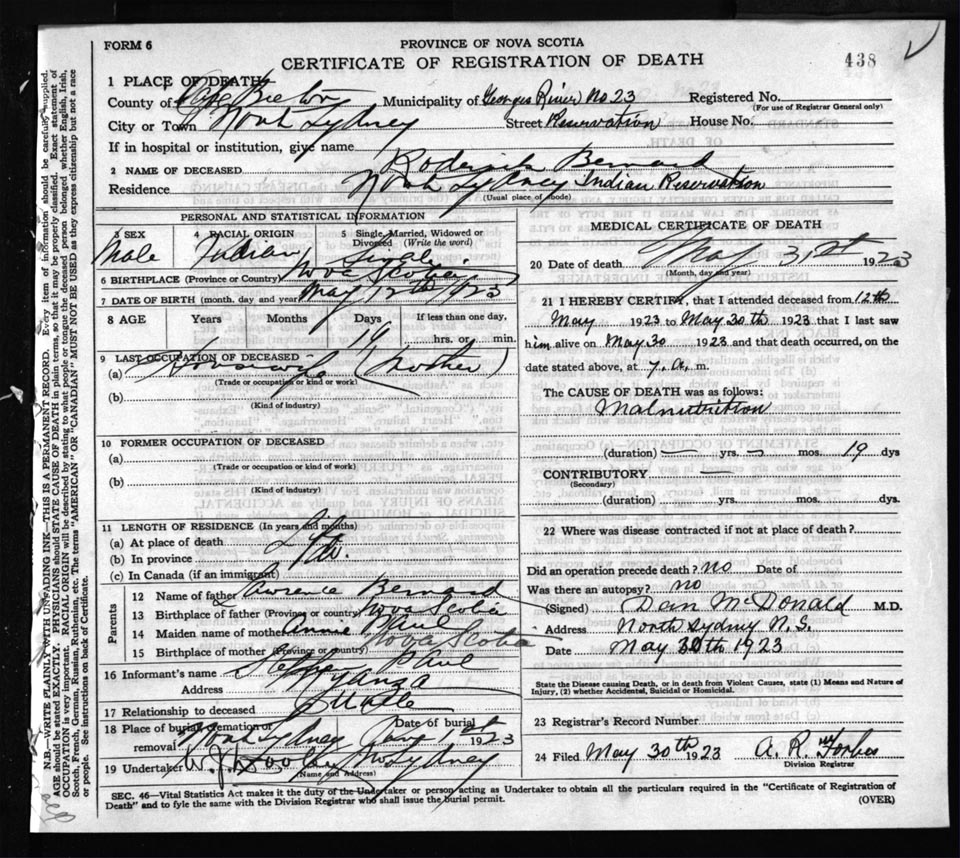 FORM 6
PROVINCE OF NOVA SCOTIA
438
CERTIFICATE OF REGISTRATION OF DEATH
1 PLACE OF DEATH
County of Cape Breton Municipality of Georges River No 23 Registered No.
(For use of Registrar General only)
City or Town North Sydney Street Reservation House No.
If in hospital or institution, give name
2 NAME OF DECEASED Roderick Bernard
Residence North Sydney Indian Reservation
(Usual place of abode)
PERSONAL AND STATISTICAL INFORMATION
3 SEX 4 RACIAL ORIGIN 5 Single, Married, Widowed or Divorced (Write the word)
Male Indian Single
6 BIRTHPLACE (Province or Country) Nova Scotia
7 DATE OF BIRTH (month, day and year) May 12th 1923
8 AGE Years Months Days If less than one day,
19 hrs. or min.
9 LAST OCCUPATION OF DECEASED
(a) Housewife (Mother)
(Trade or occupation or kind or work)
(b)
(Kind of industry)
10 FORMER OCCUPATION OF DECEASED
(a)
(Trade or occupation or kind of work)
(b)
(Kind of industry)
11 LENGTH OF RESIDENCE (In years and months)
(a) At place of death Life
(b) In province
(c) In Canada (if an immigrant)
Parents
12 Name of father Lawrence Bernard
13 Birthplace of father (Province or country) Nova Scotia
14 Maiden name of mother Annie Paul
15 Birthplace of mother (Province or Country) Nova Scotia
16 Informant's name Stephen Paul
Address Nyanza
17 Relationship to deceased
18 Place of burial, cremation or removal North Sydney Date of burial 1st 1923
19 Undertaker W. J. Dooley No Sydney
(Name and Address)
MEDICAL CERTIFICATE OF DEATH
20 Date of death May 31st 1923
(Month, day and year)
21 I HEREBY CERTIFY, that I attended deceased from 12th
May 1923 to May 30th 1923 that I last saw
him alive on May 30 1923 and that death occurred, on the
date stated above, at 7 a. m.
The CAUSE OF DEATH was as follows:
Malnutrition
(duration) — yrs. — mos. 19 dys
CONTRIBUTORY —
(Secondary)
(duration) yrs. mos. dys.
22 Where was disease contracted if not at place of death?
Did an operation precede death? no Date of
Was there an autopsy? no
(Signed) Dan McDonald M.D.
Address North Sydney N.S.
Date May 30th 1923
State the Disease causing Death, or in death from Violent Causes, state (1) Means and Nature of
Injury, (2) whether Accidental, Suicidal or Homicidal.
23 Registrar's Record Number
24 Filed May 30th 1923 A. R. Forbes
Division Registrar
SEC. 46—Vital Statistics Act makes it the duty of the Undertaker or person acting as Undertaker to obtain all the particulars required in the "Certificate of Registration of
Death" and to fyle the same with the Division Registrar who shall issue the burial permit.
(OVER)
N.B.—WRITE PLAINLY WITH UNFADING INK—THIS IS A PERMANENT RECORD. Every item of information should be carefully supplied.
AGE should be stated EXACTLY. PHYSICIANS should STATE CAUSE OF DEATH in plain terms, so that it may be properly classified. Exact statement of
OCCUPATION is very important. RACIAL ORIGIN will be described by stating to what people or tongue the deceased person belonged whether English, Irish,
Scotch, French, German, Russian, Ruthenian, etc. The terms "AMERICAN" OR "CANADIAN" MUST NOT BE USED as they express citizenship but not a race
or people. See instructions on back of Certificate.